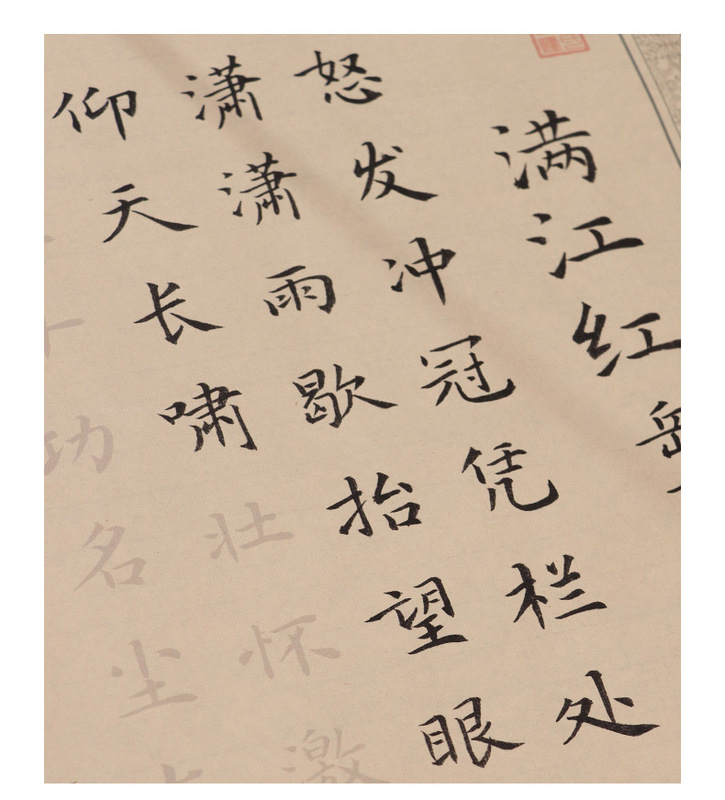 满江红岳
怒发冲冠凭栏处
潇潇雨歇抬望眼
仰天长啸壮怀激
功名尘